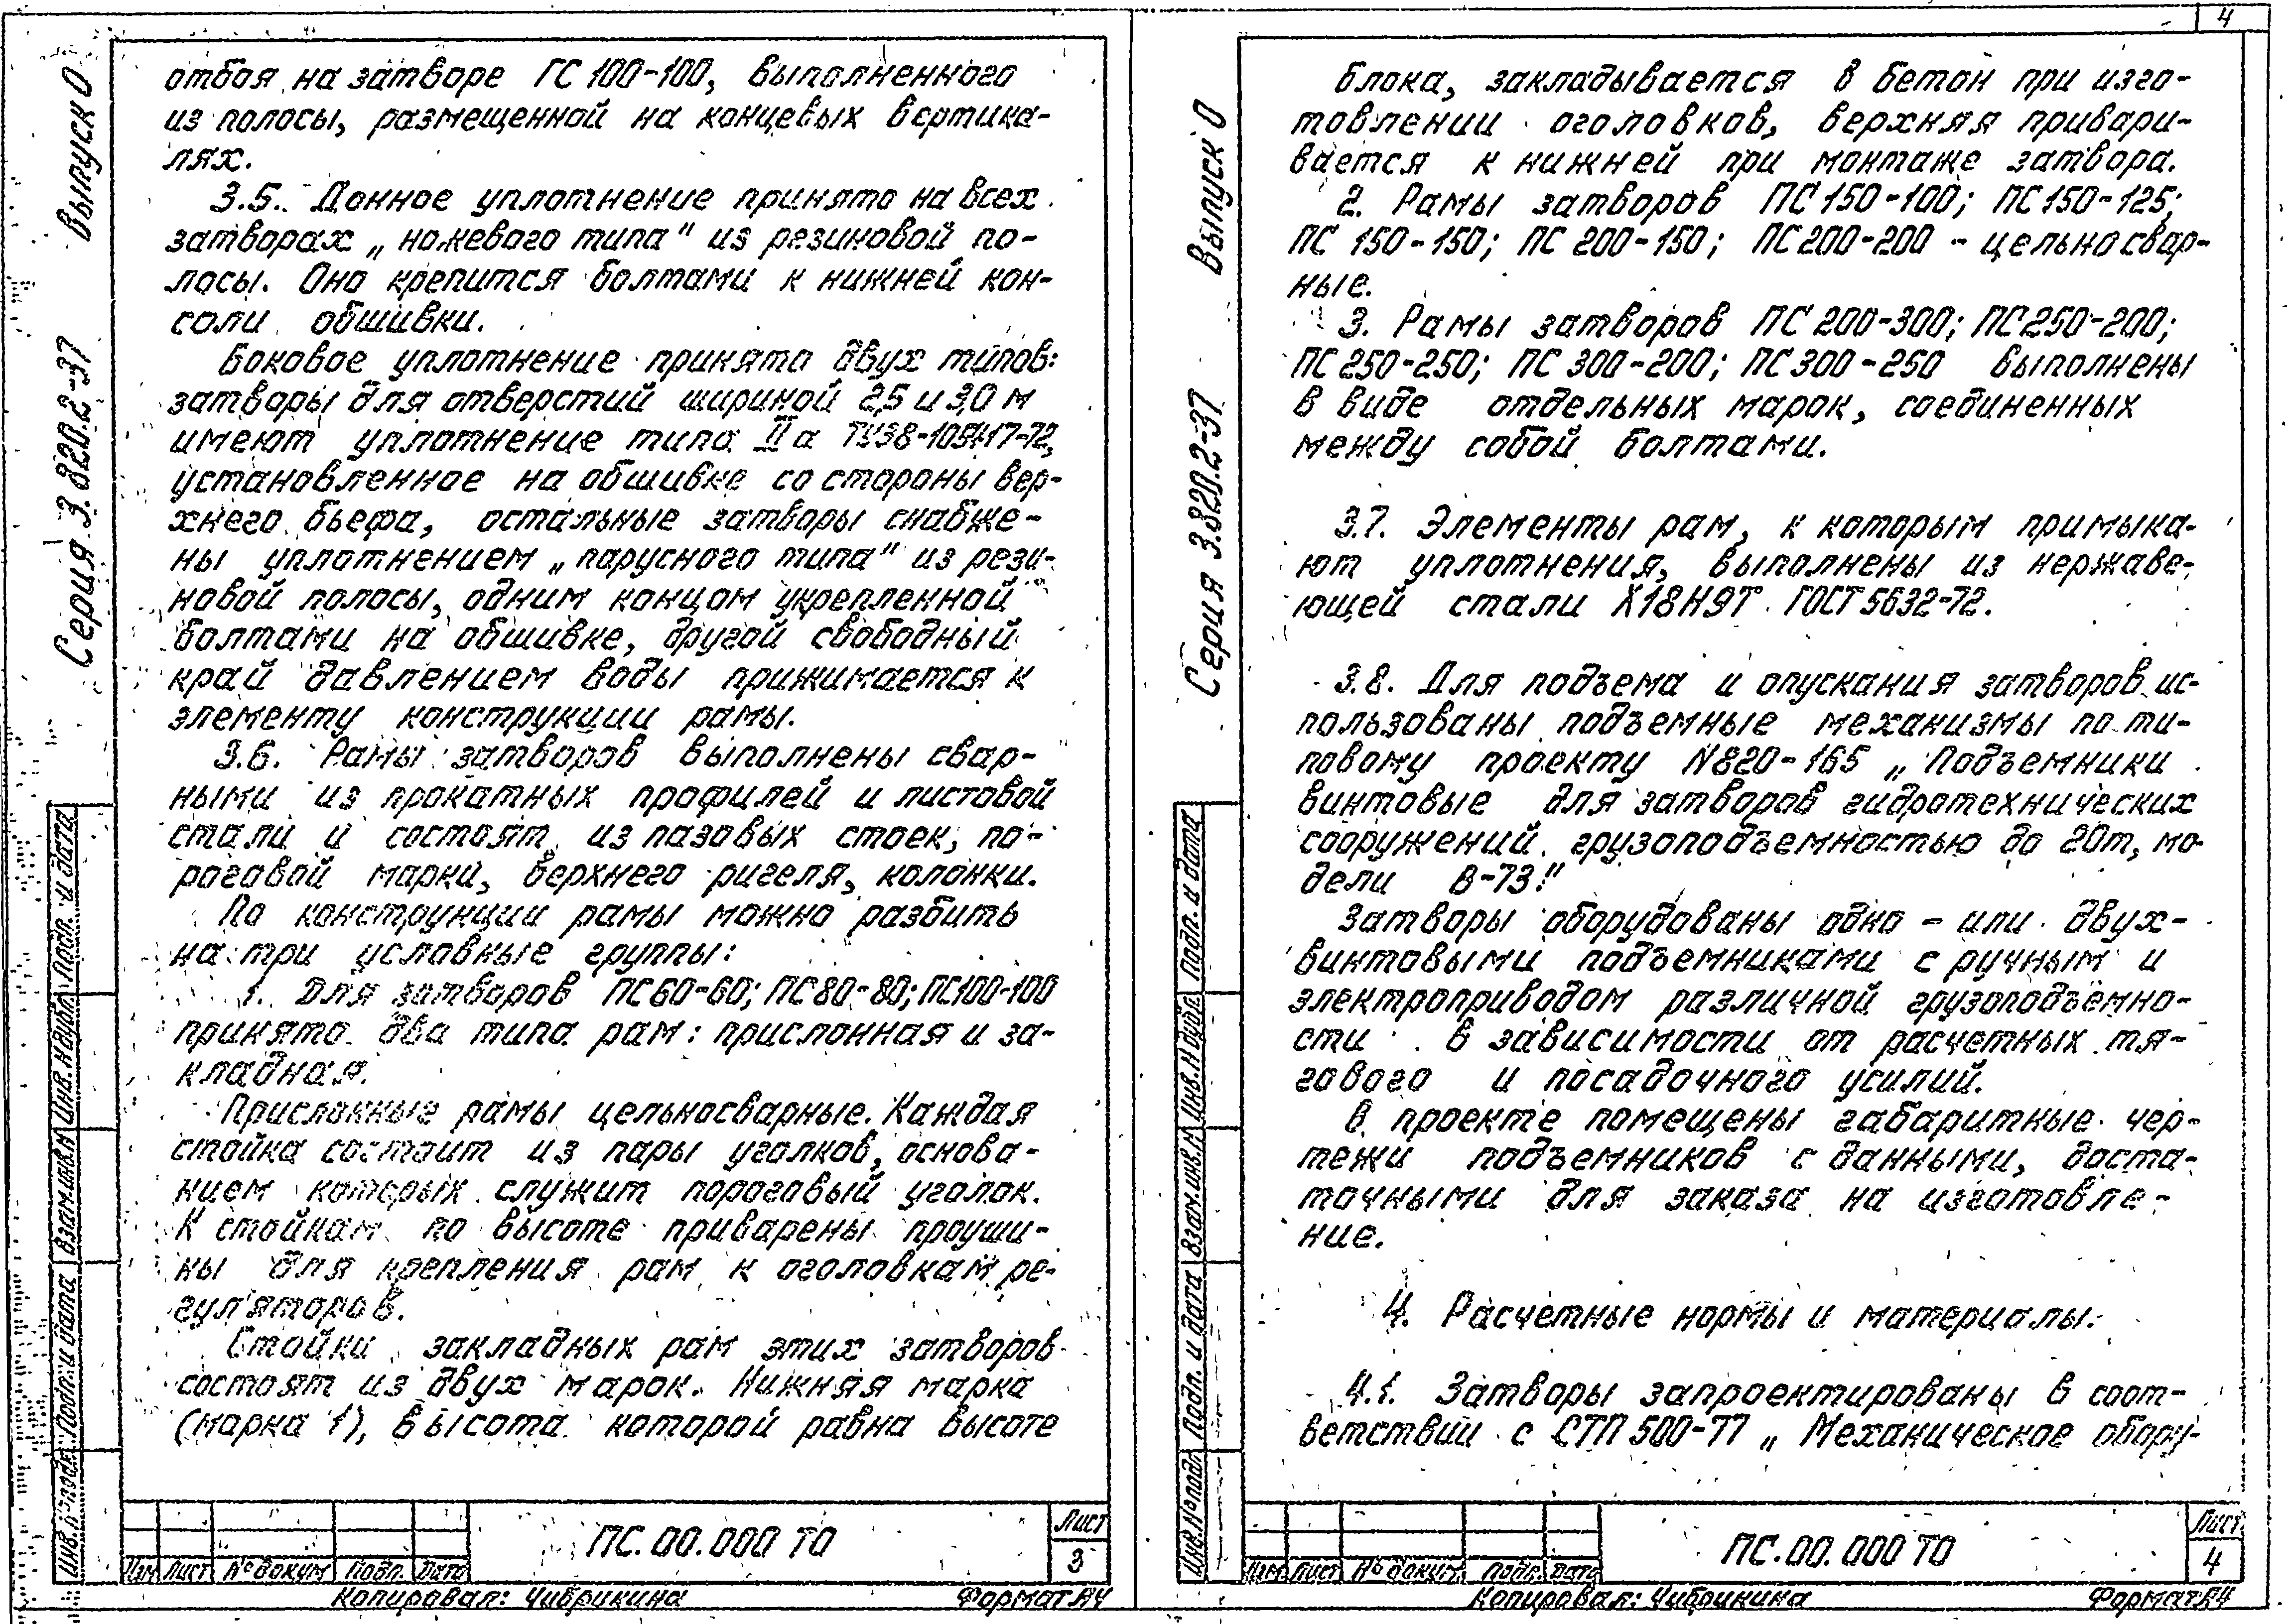 4
отбоя на затворе ГС 100-100, выполненного
из полосы, размещенной на концевых вертика-
лях.
3.5. Донное уплотнение принято на всех
затворах „ножевого типа" из резиновой по-
лосы. Оно крепится болтами к нижней кон-
соли обшивки.
Боковое уплотнение принято двух типов:
затворы для отверстий шириной 2,5 и 3,0 м
имеют уплотнение типа IIа ТУ38-105417-72,
установленное на обшивке со стороны вер-
хнего бьефа, остальные затворы снабже-
ны уплотнением „парусного типа" из рези-
новой полосы, одним концом укрепленной
болтами на обшивке, другой свободный
край давлением воды прижимается к
элементу конструкции рамы.
3.6. Рамы затворов выполнены свар-
ными из прокатных профилей и листовой
стали и состоят из пазовых стоек, по-
роговой марки, верхнего ригеля, колонки.
По конструкции рамы можно разбить
на три условные группы:
1. Для затворов ПС60-60; ПС80-80; ПС100-100
принято два типа рам: прислонная и за-
кладная.
Прислонные рамы цельносварные. Каждая
стойка состоит из пары уголков, основа-
нием которых служит пороговый уголок.
К стойкам по высоте приварены проуши-
ны для крепления рам к оголовкам ре-
гуляторов.
Стойки закладных рам этих затворов
состоят из двух марок. Нижняя марка
(марка 1), высота которой равна высоте
Серия 3.820.2-37 Выпуск 0
Инв.№подл. Подп. и дата Взам.инв.№ Инв.№дубл. Подп. и дата
Изм Лист №докум Подп. Дата
ПС.00.000 ТО
Лист
3
Копировал: Чибрикина Формат А4
блока, закладывается в бетон при изго-
товлении оголовков, верхняя привари-
вается к нижней при монтаже затвора.
2. Рамы затворов ПС150-100; ПС150-125;
ПС 150-150; ПС 200-150; ПС200-200 - цельносвар-
ные.
3. Рамы затворов ПС 200-300; ПС250-200;
ПС250-250; ПС 300-200; ПС300-250 выполнены
в виде отдельных марок, соединенных
между собой болтами.
3.7. Элементы рам, к которым примыка-
ют уплотнения, выполнены из нержаве-
ющей стали Х18Н9Т ГОСТ 5632-72.
3.8. Для подъема и опускания затворов ис-
пользованы подъемные механизмы по ти-
повому проекту N820-165 „Подъемники
винтовые для затворов гидротехнических
сооружений грузоподъемностью до 20т, мо-
дели В-73."
Затворы оборудованы одно - или двух-
винтовыми подъемниками с ручным и
электроприводом различной грузоподъемно-
сти в зависимости от расчетных тя-
гового и посадочного усилий.
В проекте помещены габаритные чер-
тежи подъемников с данными, доста-
точными для заказа на изготовле-
ние.
4. Расчетные нормы и материалы.
4.1. Затворы запроектированы в соот-
ветствии с СТП 500-77 „Механическое обору-
Серия 3.820.2-37 Выпуск 0
Инв.№подл. Подп. и дата Взам.инв.№ Инв.№дубл. Подп. и дата
Изм Лист №докум. Подп. Дата
ПС.00.000 ТО
Лист
4
Копировал: Чибрикина Формат А4